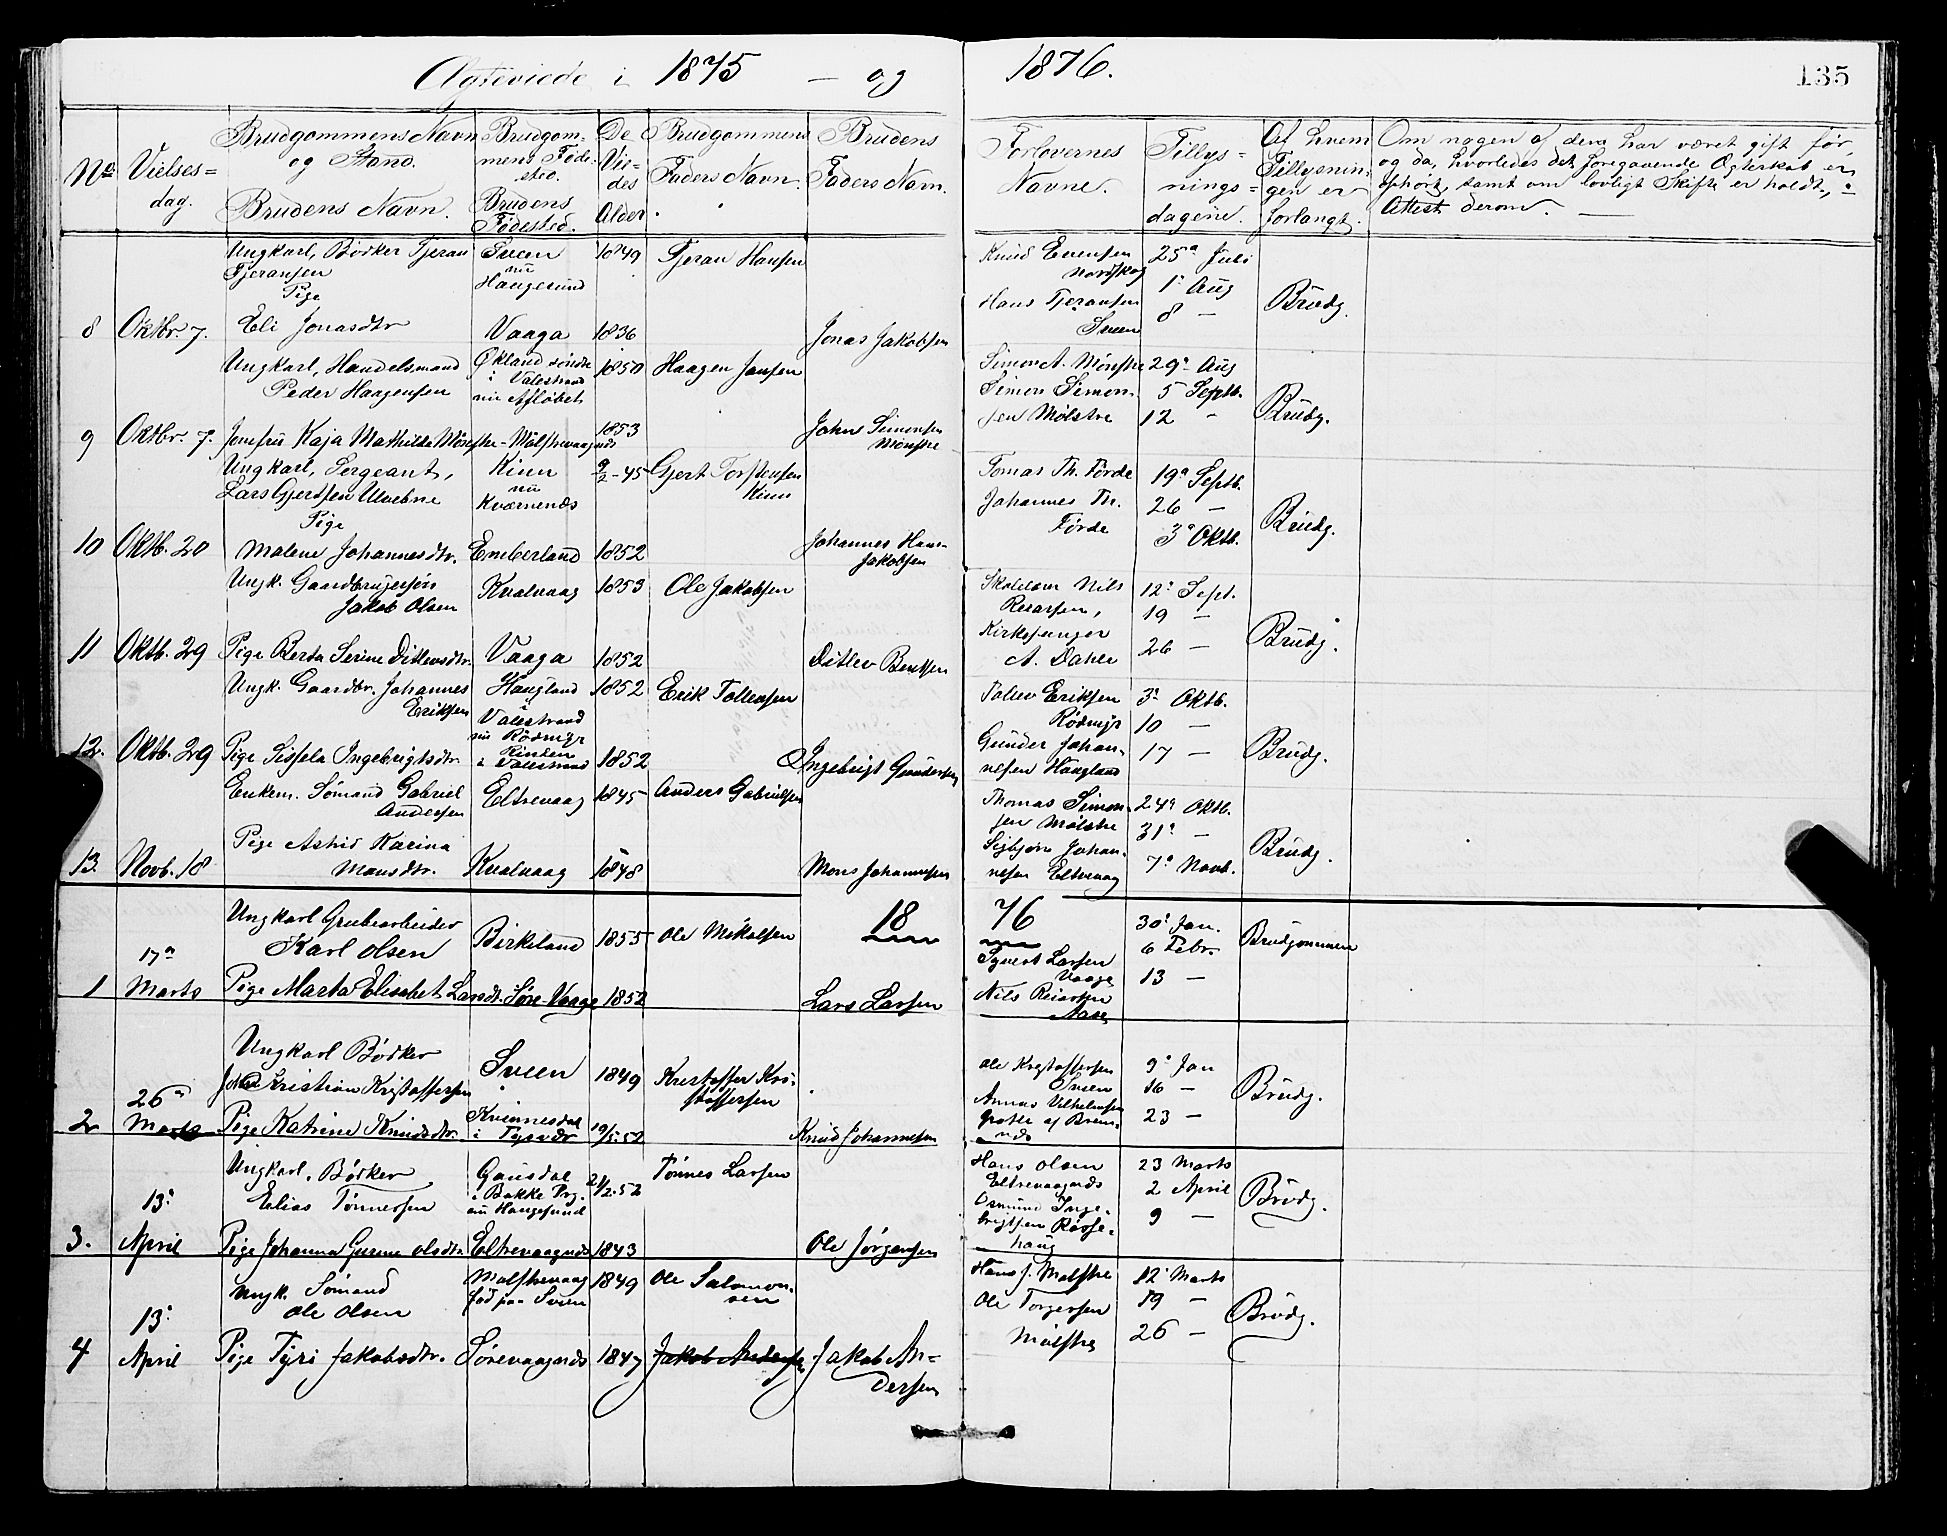 Ægteviede i 1875 — og 1876.
135
No. Vielses=dag. Brudgommens Navn og Stand. Brudens Navn. Brudgommens Fødested. Brudens Fødested. De Viedes Alder. Brudgommens Faders Navn. Brudens Faders Navn. Forlovernes Navne. Tillys=nings=dagene. Af hvem Tillysningen er forlangt.
Om nogen af dem har været gift før,
og da, hvorledes det foregaaende Ægteskab er
ophørt, samt om lovligt Skifte er holdt,
Attest derom. —
Ungkarl, Bødker Tjeran Sveen 1849 Tjeran Hansen Knud Evensen 25a Juli
Tjeransen nu Nordskog
Haugesund 1. Aug
Pige Hans Tjeransen Brudg.
8 Oktbr. 7. Eli Jonasdtr Vaaga 1836 Jonas Jakobsen Sveen 8 —
Ungkarl, Handelsmand Økland søndre 1850 Haagen Jansen Simon A. Mønstre 29. Aug
Peder Haagensen i Valestrand Simon Simon- 5 Septb. Brudg.
nu Afløbet sen Mølstre 12 "
9 Oktbr. 7. Jomfru Kaja Mathilde Mønstre - Mølstrevaagnæs 1853 Johns Simonsen
Mønstre
Ungkarl, Sergeant, Kinn 9/2-45 Gjert Torstensen Tomas Th. Førde 19a Septb.
Lars Gjertsen nu Kinn Johannes Th. 26 —
Pige Kværnenæs Førde 3a Oktb. Brudg.
10 Oktb. 20 Malene Johannesdtr. Emberland 1852 Johannes Hans
Jakobsen
Ungk. Gaardbrugersøn Kvalvaag 1853 Ole Jakobsen Skolelærer Nils 12. Sept.
Jakob Olsen Reiarsen, 19 —
Kirkesanger Brudg.
11 Oktb. 29 Pige Berta Serine Ditlevsdtr. Vaaga 1852 Ditlev Bentsen A. Dahle 26 —
Ungk. Gaardbr. Johannes Haugland 1852 Erik Tollevsen Tollev Eriksen 3. Oktb.
Eriksen i Valestrand 10 —
nu
12. Oktb. 29 Pige Sissela Ingebrigtsdtr. i Valestrand 1852 Ingebrigt Gundersen Gunder Johan- 17 — Brudg.
nesen Haugland
Enkem. Sømand Gabriel Eltrevaag 1845 Anders Gabrielsen Thomas Simon- 24a Oktb.
Andersen sen Mølstre 31a —
Pige Astrid Karina Sigbjørn Johan- Brudg.
13. Novb. 18 Monsdtr. Kvalvaag 1848 Mons Johannesen nesen Eltrevaag 7a Novb.
18 76
Ungkarl Grubearbeider Birkeland 1855 Ole Mikalsen 30. Jan. Brudgommen
Karl Olsen 6 Febr.
17a Syvert Larsen Vaage 13 —
1 Marts Pige Marta Elisabet Larsdt. Søre-Vaage 1852 Lars Larsen Nils Reiarsen
Aase
Ungkarl Bødker Sveen 1849 Kristoffer Kri- Ole Kristoffersen 9. Jan
Johan Kristian Kristoffersen stoffersen Sveen 16 — Brudg.
26a Annas Vilhelmsen 23 —
2 Marts Pige Katrine Knudsdtr. Kvinnesdal 19/5.52 Knud Johannesen
i Tysvær
Ungkarl, Bødker Gausdal 21/2.52 Tønnes Larsen Hans Olsen 23 Marts
Elias Tønnessen i Bakke Prg. Eltrevaagnæs 2 April Brudg.
13. nu Haugesund Osmund Inge- 9 —
3. April Pige Johanna Gurine Olsdtr. Eltrevaagnæs 1843 Ole Jørgensen brigtsen Røsse-
haug
Ungk. Sømand Mølstrevaag 1849 Ole Salomon- Hans J. Mølstre 12. Marts
Ole Olsen fød paa Sveen sen Ole Torgersen 19 — Brudg.
13. Mølstre 26 —
4 April Pige Tyri Jakobsdtr. Sørevaagnæs 1847 Jakob Andersen Jakob An=
dersen